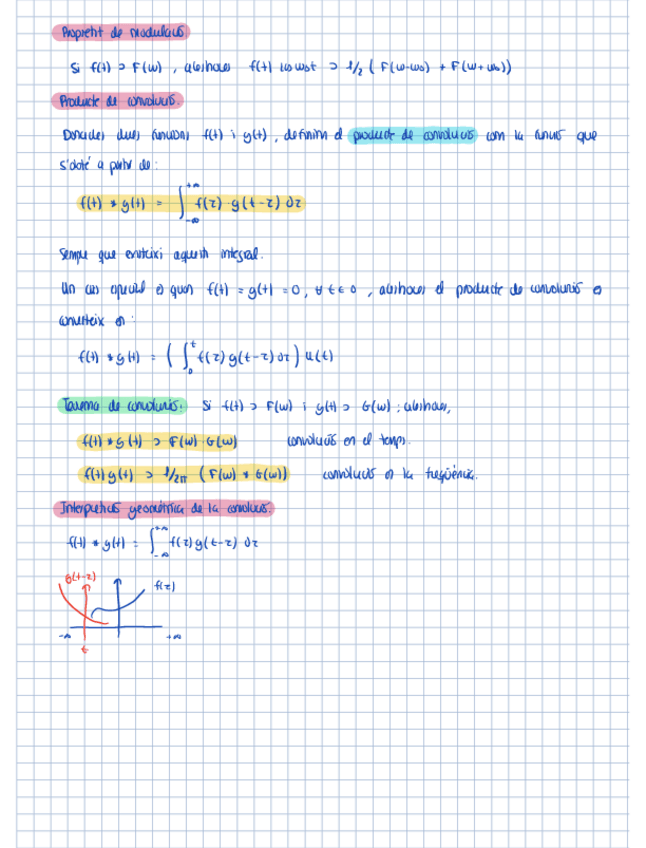 Propietat de modulació
Si f(t) ⊃ F(ω), aleshores f(t) cos ω₀t ⊃ 1/2 ( F(ω-ω₀) + F(ω+ω₀))
Producte de convolució.
Donades dues funcions f(t) i g(t), definim el producte de convolució com la funció que
s'obté a partir de:
f(t) * g(t) = ∫_{-∞}^{+∞} f(τ) · g(t-τ) dτ
Sempre que existeixi aquesta integral.
Un cas especial és quan f(t) = g(t) = 0, ∀ t ≤ 0, aleshores el producte de convolució es
converteix en:
f(t) * g(t) = ( ∫_0^t f(τ) g(t-τ) dτ ) u(t)
Teorema de convolució. Si f(t) ⊃ F(ω) i g(t) ⊃ G(ω); aleshores,
f(t) * g(t) ⊃ F(ω) · G(ω) convolució en el temps.
f(t) g(t) ⊃ 1/2π ( F(ω) * G(ω)) convolució en la freqüència.
Interpretació geomètrica de la convolució.
f(t) * g(t) = ∫_{-∞}^{+∞} f(τ) g(t-τ) dτ
g(t-τ) f(τ)
-∞ +∞
t